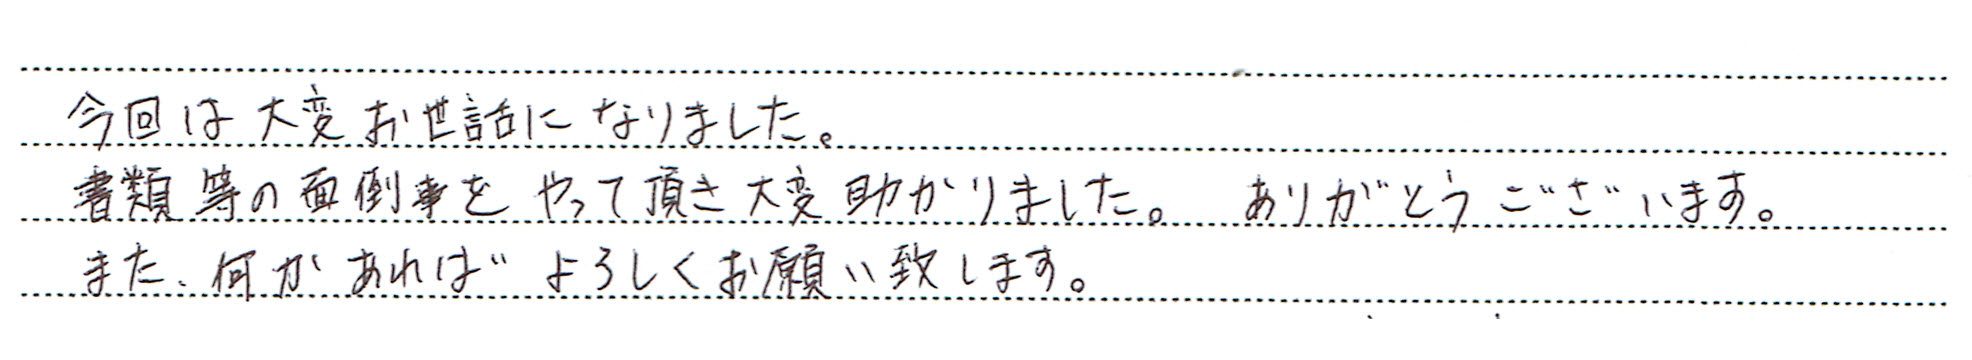 今回は大変お世話になりました。
書類等の面倒事をやって頂き大変助かりました。 ありがとうございます。
また、何かあれば よろしくお願い致します。